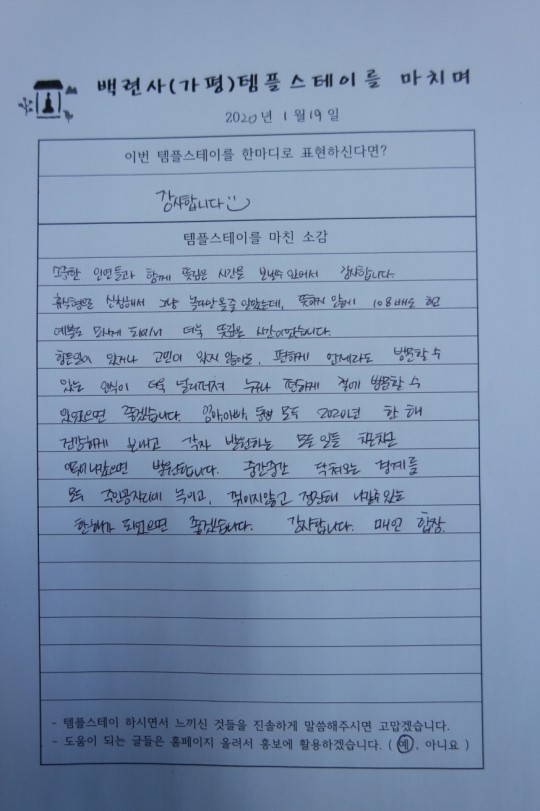 백련사(가평)템플스테이를 마치며
2020년 1월 19일
이번 템플스테이를 한마디로 표현하신다면?
감사합니다
템플스테이를 마친 소감
소중한 인연들과 함께 뜻깊은 시간을 보낼 수 있어서 감사합니다.
휴식형으로 신청해서 그냥 놀다만 올줄 알았는데, 뜻하지 않게 108배도 하고
예불도 하게 되어서 더욱 뜻깊은 시간이었습니다.
힘든일이 있거나 고민이 있지 않아도, 편하게 언제라도 방문할 수
있는 인식이 더욱 널리퍼져 누구나 편하게 절에 방문할 수
있었으면 좋겠습니다. 엄마,아빠, 동생 모두 2020년 한 해
건강하게 보내고 각자 발원하는 모든 일들 차근차근
해나갔으면 발원합니다. 중간중간 닥쳐오는 경계를
모두 주인공자리에 놓이고, 꺾이지않고 정진해 나갈수있는
한해가 되었으면 좋겠습니다. 감사합니다. 합장.
- 템플스테이 하시면서 느끼신 것들을 진솔하게 말씀해주시면 고맙겠습니다.
- 도움이 되는 글들은 홈페이지 올려서 홍보에 활용하겠습니다. ( 예, 아니요 )